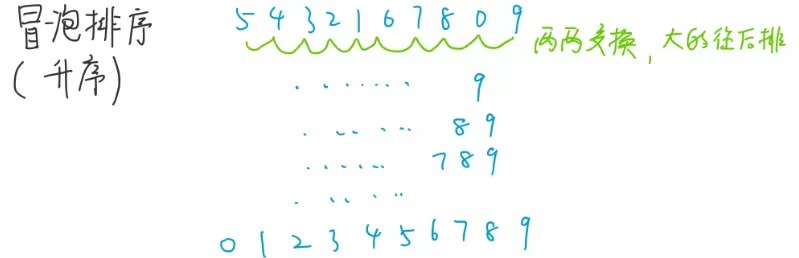 冒泡排序
(升序)
5 4 3 2 1 6 7 8 0 9
两两交换,大的往后排
. . . . . . . 9
. . . . . 8 9
. . . . . . 7 8 9
. . . . .
0 1 2 3 4 5 6 7 8 9